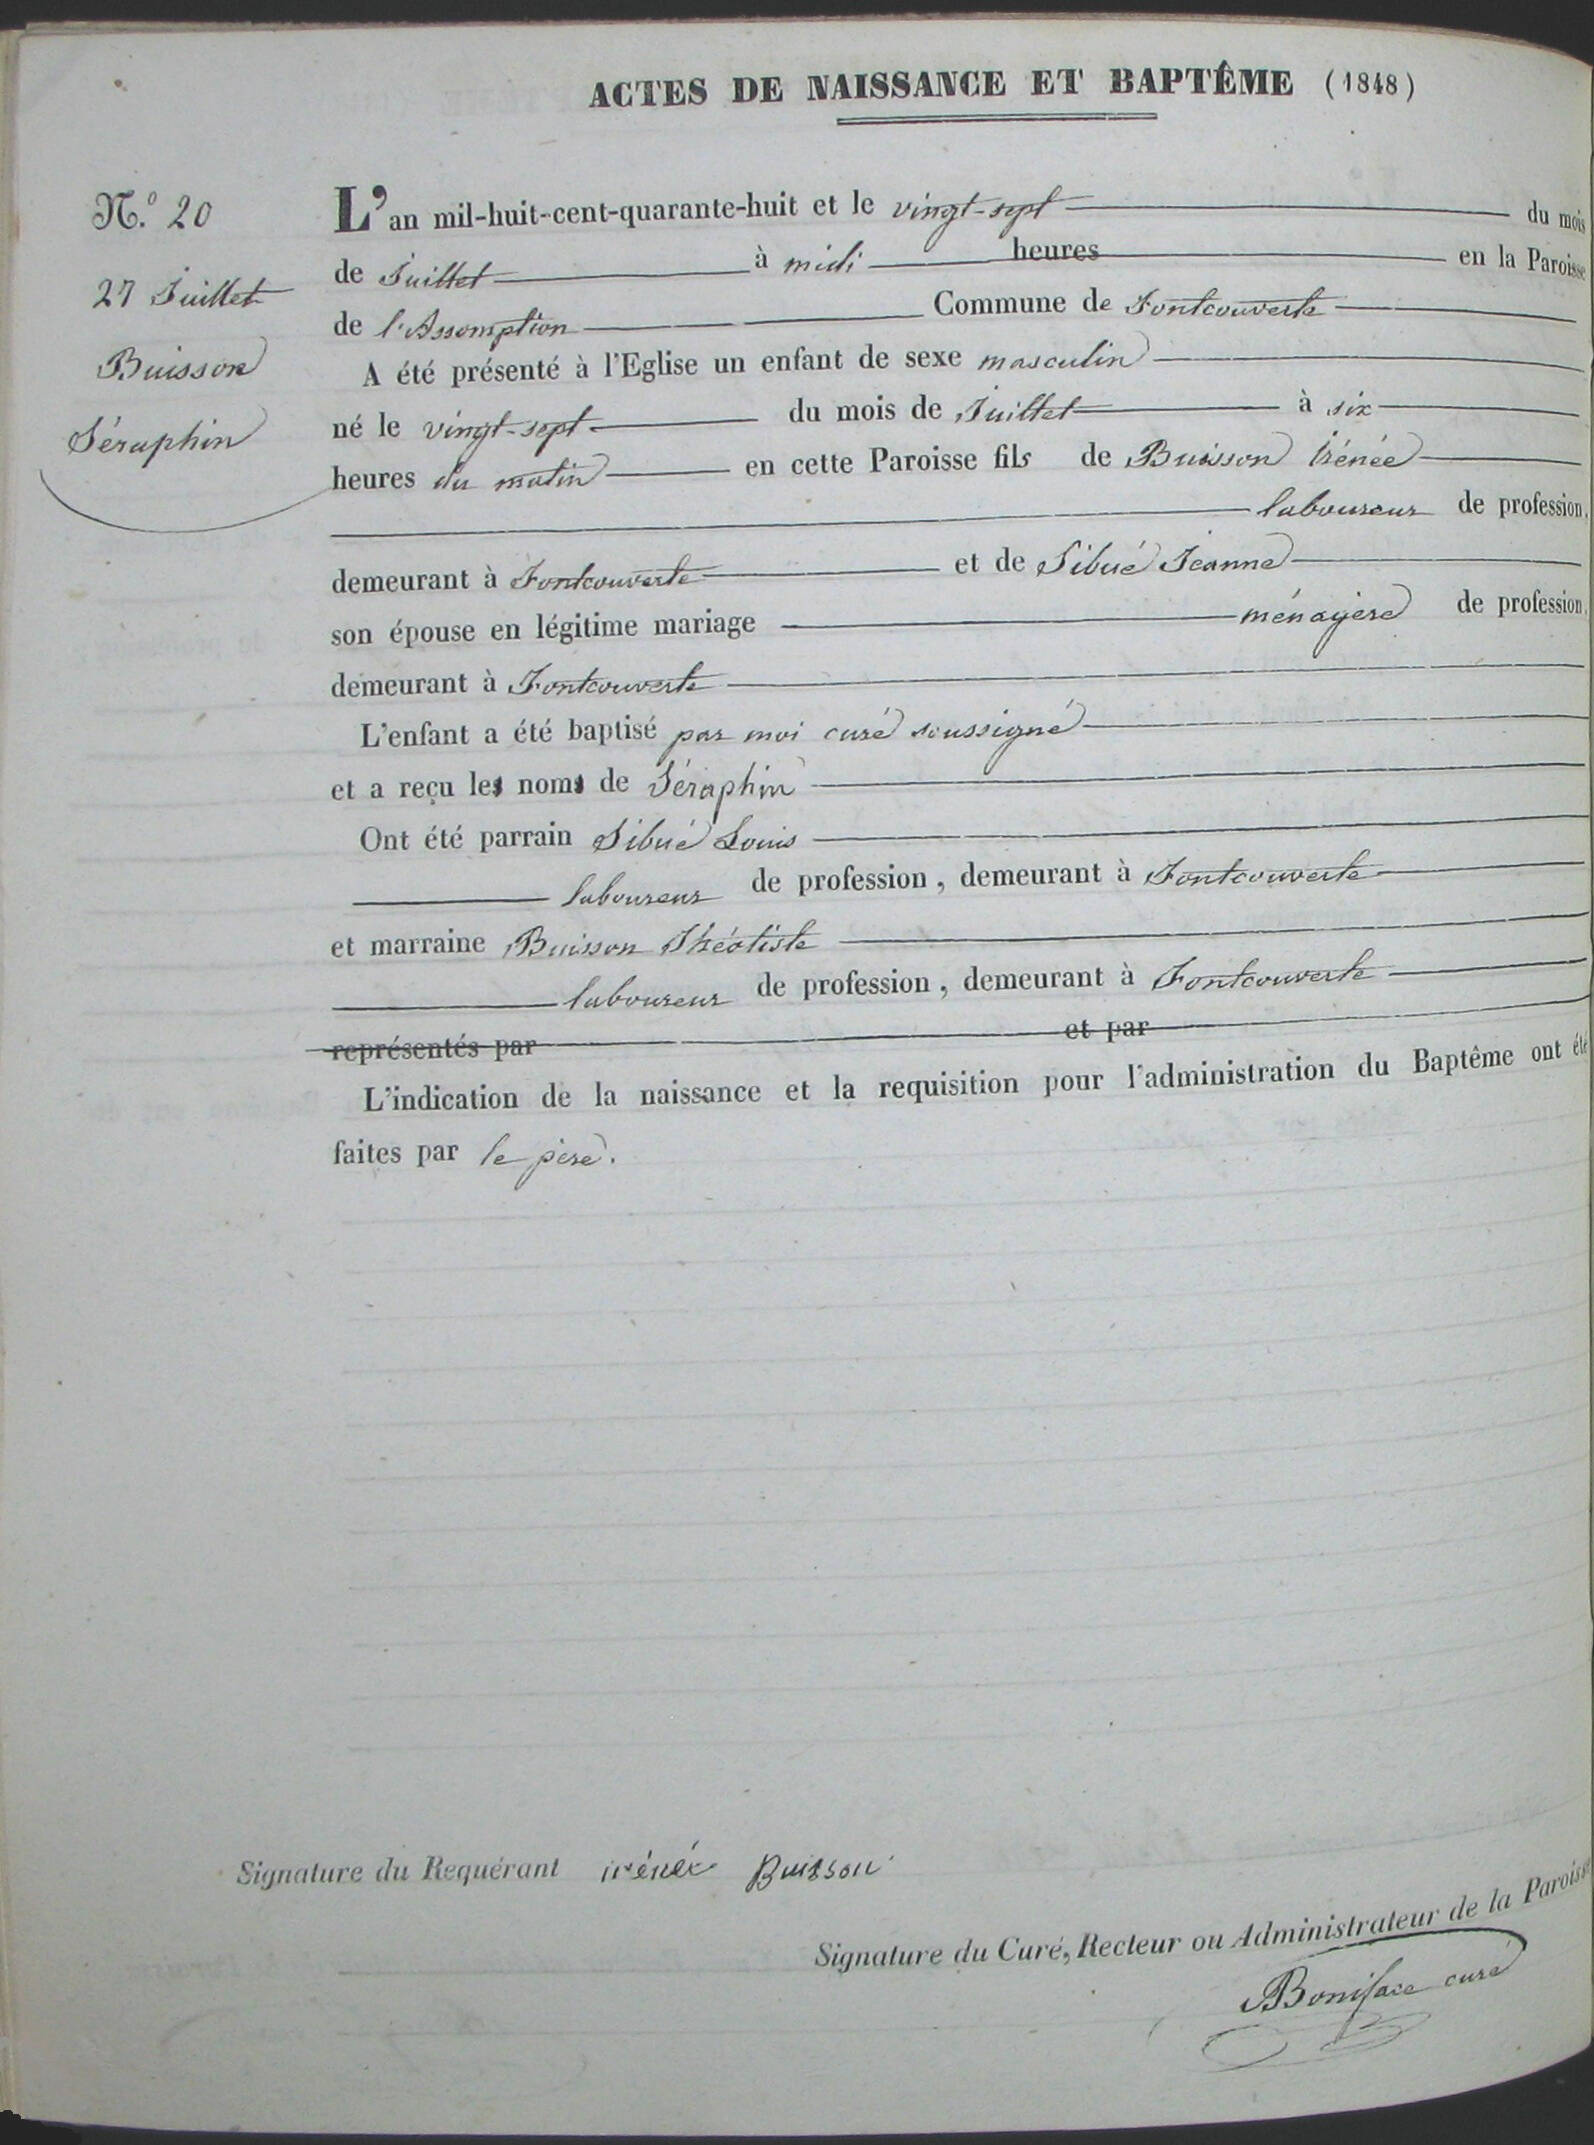 ACTES DE NAISSANCE ET BAPTÊME (1848)
N.º 20
27 Juillet
Buisson
Séraphin
L'an mil-huit-cent-quarante-huit et le vingt-sept du mois
de Juillet à midi heures en la Paroisse
de l'Assomption Commune de Fontcouverte
A été présenté à l'Eglise un enfant de sexe masculin
né le vingt-sept du mois de Juillet à six
heures du matin en cette Paroisse fils de Buisson Irénée
laboureur de profession,
demeurant à Fontcouverte et de Sibué Jeanne
son épouse en légitime mariage ménagère de profession,
demeurant à Fontcouverte
L'enfant a été baptisé par moi curé soussigné
et a reçu les noms de Séraphin
Ont été parrain Sibué Louis
laboureur de profession, demeurant à Fontcouverte
et marraine Buisson Théotiste
laboureur de profession, demeurant à Fontcouverte
représentés par et par
L'indication de la naissance et la requisition pour l'administration du Baptême ont été
faites par le père.
Signature du Requérant irénée Buisson
Signature du Curé, Recteur ou Administrateur de la Paroisse
Boniface curé